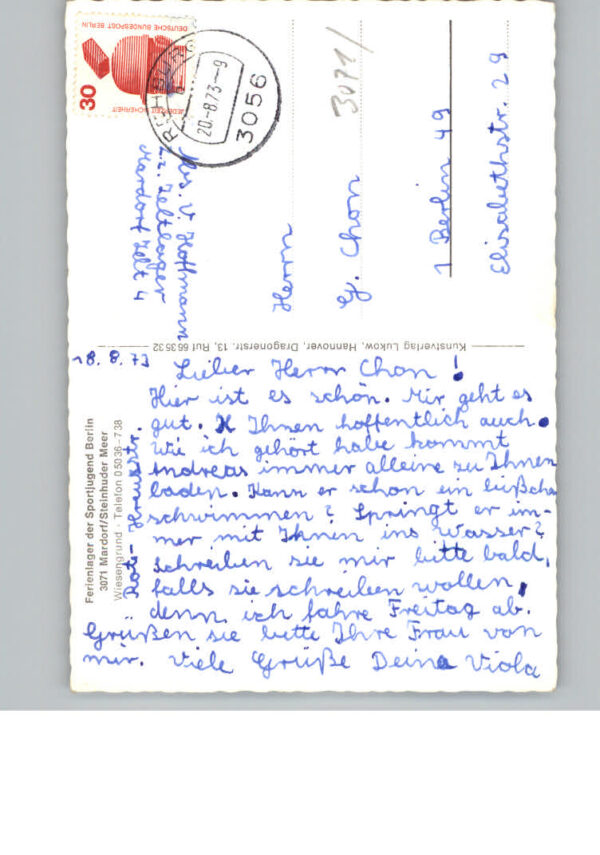 18. 8. 73
Lieber Herr Chon!
Hier ist es schön. Mir geht es
gut. Ihnen hoffentlich auch.
Wie ich gehört habe kommt
Andreas immer alleine zu Ihnen
baden. Kann er schon ein bißchen
schwimmen? Springt er im-
mer mit Ihnen ins Wasser?
Schreiben sie mir bitte bald,
falls sie schreiben wollen,
denn ich fahre Freitag ab.
Grüßen sie bitte Ihre Frau von
mir. Viele Grüße Deine Viola
Ferienlager der Sportjugend Berlin
3071 Mardorf/Steinhuder Meer
Wiesengrund · Telefon 05036-738
Rote-Kreuzstr.
Kunstverlag Lukow, Hannover, Dragonerstr. 13, Ruf 663532
Abs. V. Hoffmann
z.Z. Zeltlager
Mardorf Zelt 4
DEUTSCHE BUNDESPOST BERLIN
JEDERZEIT SICHERHEIT
30
REHBURG
20.-8.73-9
3056
3071/
Herrn
G. Chon
1 Berlin 49
Elisabethstr. 29